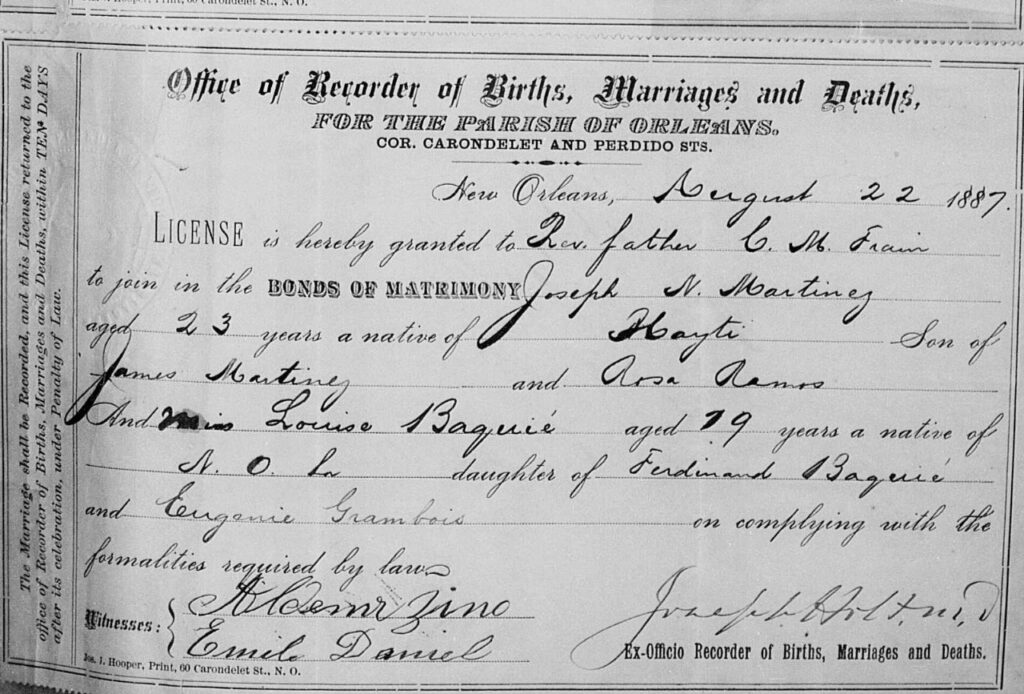 Jos. J. Hooper, Print, 60 Carondelet St., N. O.
Office of Recorder of Births, Marriages and Deaths,
FOR THE PARISH OF ORLEANS.
COR. CARONDELET AND PERDIDO STS.
New Orleans, August 22 1887.
LICENSE is hereby granted to Rev. father C. M. Frain
to join in the BONDS OF MATRIMONY Joseph N. Martinez
aged 23 years a native of Hayti Son of
James Martinez and Rosa Ramos
And Miss Louise Baquié aged 19 years a native of
N. O. La daughter of Ferdinand Baquié
and Eugenie Grambois on complying with the
formalities required by law
Witnesses: Zino
Emile Daniel
Joseph Holt M, D
Ex-Officio Recorder of Births, Marriages and Deaths.
Jos. J. Hooper, Print, 60 Carondelet St., N. O.
The Marriage shall be Recorded, and this License returned to the
office of Recorder of Births, Marriages and Deaths, within TEN DAYS
after its celebration, under Penalty of Law.